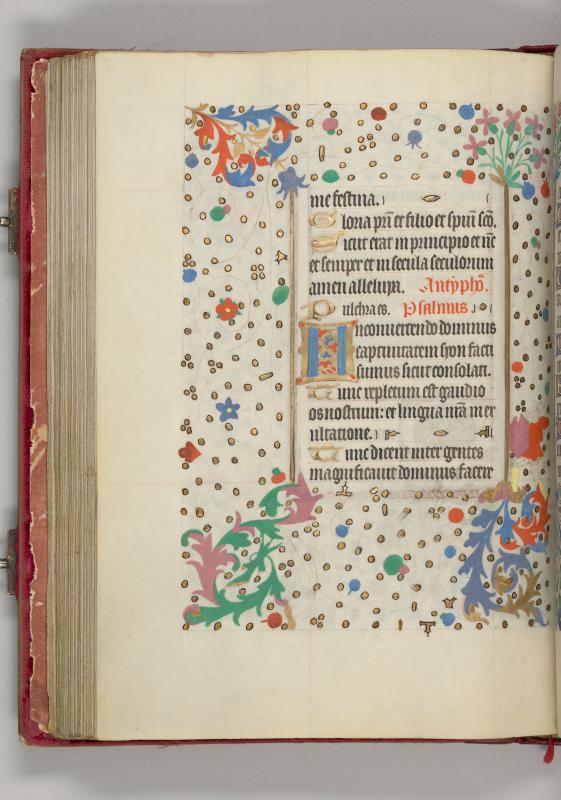 me festina.
Gloria pr̄i et filio et spiui sc̄o.
Sicut erat in principio et nc̄
et semper et in secula seculorum
amen alleluya. Antypho.
Pulchra es. Psalmus
In conuertendo dominus
captiuitatem syon facti
sumus sicut consolati.
Tunc repletum est gaudio
os nostrum: et lingua nr̄a in ex
ultatione.
Tunc dicent inter gentes
magnificauit dominus facere